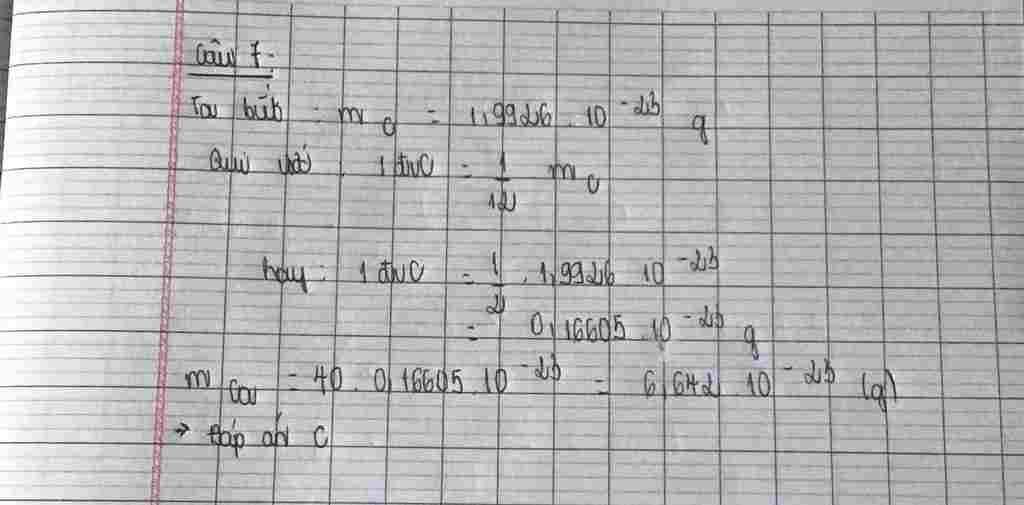 Câu 7.
Ta biết : m_C = 1,9926 . 10^-23 g
Quy ước : 1 đvC = 1/12 m_C
hay : 1 đvC = 1/2 . 1,9926 10^-23
= 0,16605 . 10^-23 g
m_Ca = 40 . 0,16605 . 10^-23 = 6,642 . 10^-23 (g)
→ đáp án C